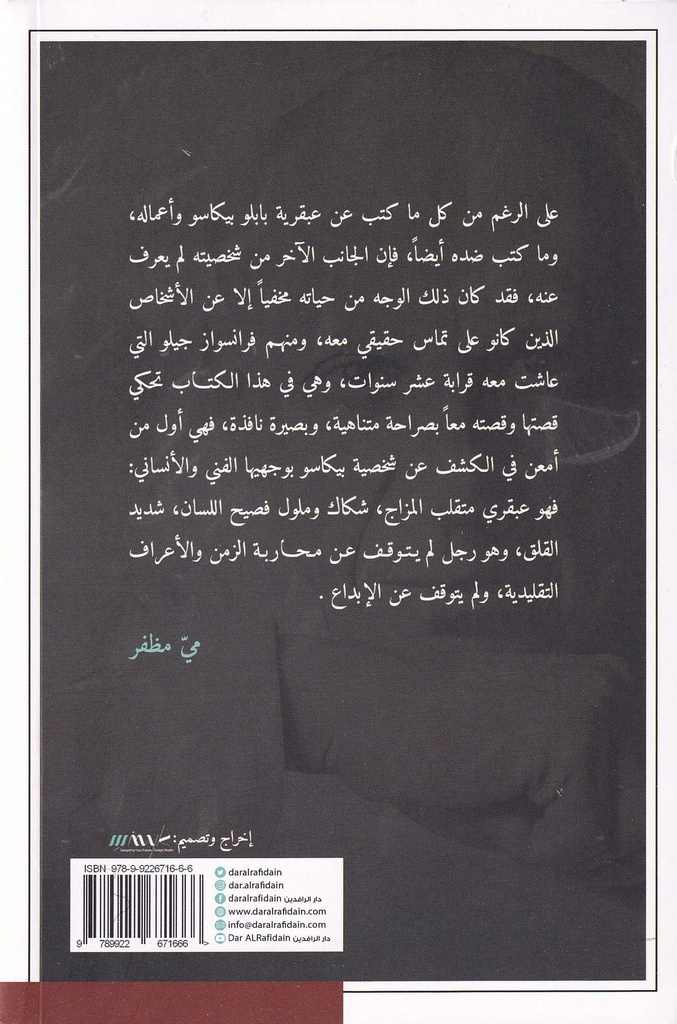 على الرغم من كل ما كتب عن عبقرية بابلو بيكاسو وأعماله،
وما كتب ضده أيضاً، فإن الجانب الآخر من شخصيته لم يعرف
عنه، فقد كان ذلك الوجه من حياته مخفياً إلا عن الأشخاص
الذين كانو على تماس حقيقي معه، ومنهم فرانسواز جيلو التي
عاشت معه قرابة عشر سنوات، وهي في هذا الكتاب تحكي
قصتها وقصته معاً بصراحة متناهية، وبصيرة نافذة، فهي أول من
أمعن في الكشف عن شخصية بيكاسو بوجهيها الفني والأنساني:
فهو عبقري متقلب المزاج، شكاك وملول فصيح اللسان، شديد
القلق، وهو رجل لم يتوقف عن محاربة الزمن والأعراف
التقليدية، ولم يتوقف عن الإبداع .
ميّ مظفر
إخراج وتصميم:
ISBN 978-9-9226716-6-6
9 789922 671666 >
daralrafidain
dar.alrafidain
daralrafidain دار الرافدين
www.daralrafidain.com
info@daralrafidain.com
Dar ALRafidain دار الرافدين